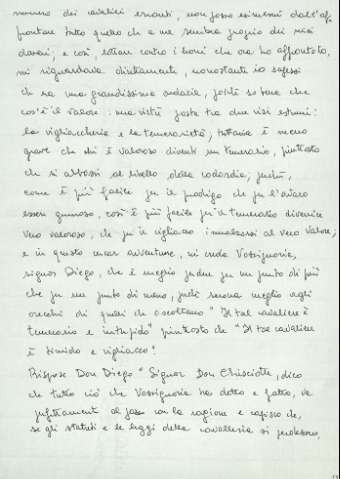 numero dei cavalieri erranti, non posso esimermi dall'af
frontare tutto quello che a me sembra proprio dei miei
doveri; e così, lottare contro i leoni che ora ho affrontato,
mi riguardava direttamente, nonostante io sapessi
che era una grandissima audacia, poiché so bene che
cos'è il valore: una virtù posta tra due vizi estremi:
la vigliaccheria e la temerarietà; tuttavia è meno
grave che chi è valoroso diventi un temerario, piuttosto
che si abbassi al livello della codardia; perché,
come è più facile per il prodigo che per l'avaro
essere generoso, così è più facile per il temerario divenire
vero valoroso, che per il vigliacco innalzarsi al vero valore;
e in questo cercar avventure, mi creda Vossignoria,
signor Diego, che è meglio perder per un punto di più
che per un punto di meno, perché suona meglio agli
orecchi di quelli che ascoltano "Il tal cavaliere è
temerario e intrepido" piuttosto che "Il tal cavaliere
è timido e vigliacco".
Rispose Don Diego "Signor Don Chisciotte, dico
che tutto ciò che Vossignoria ha detto e fatto, va
perfettamente al passo con la ragione e capisco che,
se gli statuti e le leggi della cavalleria si perdessero,